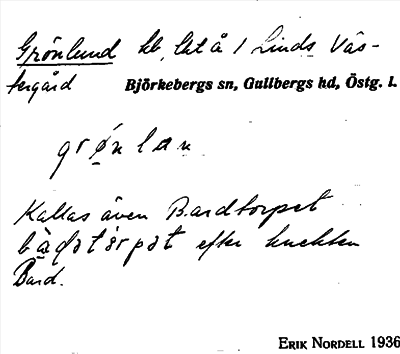 Grönlund hb, lht å 1 Linds Väs-
tergård Björkebergs sn, Gullbergs hd, Östg. l.
grǿnlan
Kallas även Bardtorpet
efter knekten
Bard.
ERIK NORDELL 1936